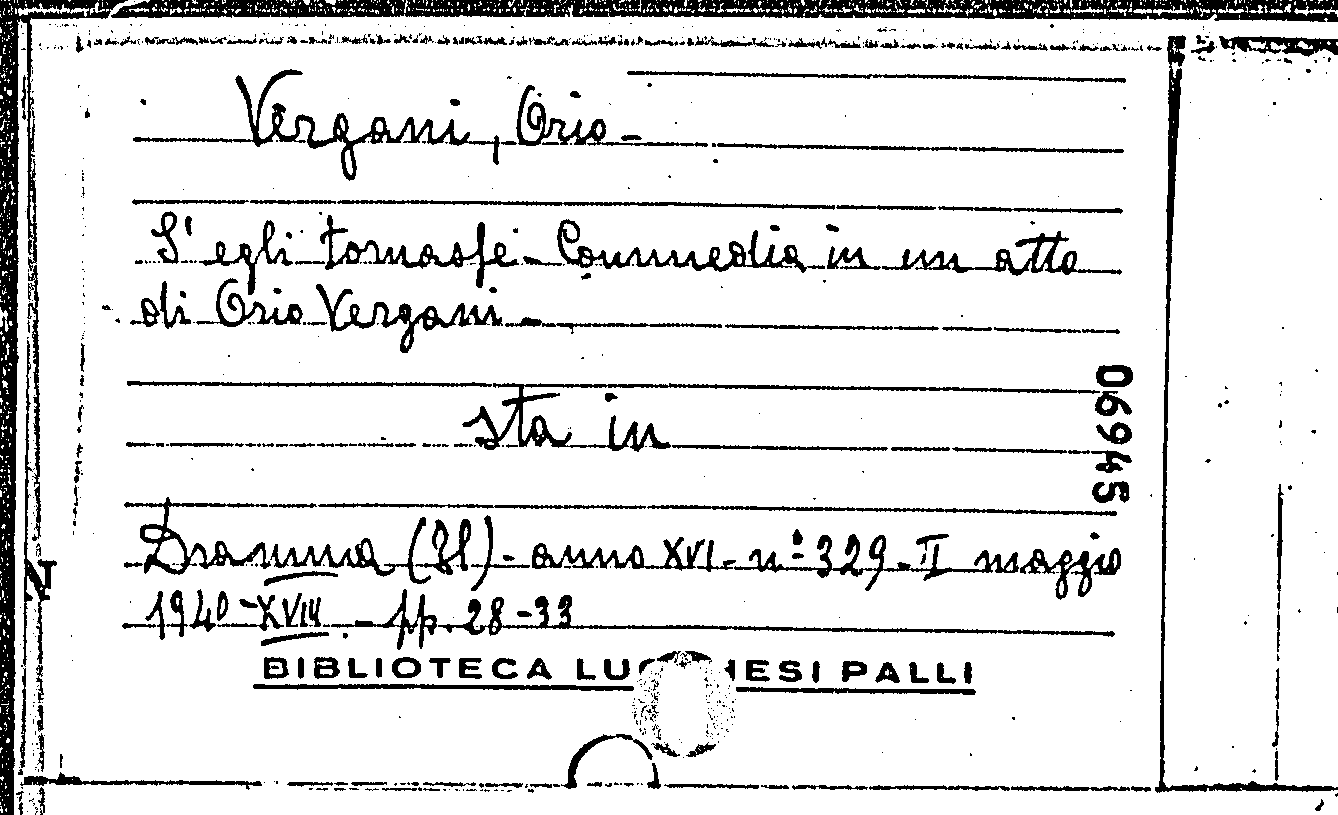 Vergani, Orio-
S'egli tornasse - Commedia in un atto
di Orio Vergani -
sta in
06945
Dramma (Il) - anno XVI - n° 329 - II maggio
1940 - XVIII - pp. 28-33
BIBLIOTECA LUCCHESI PALLI
N